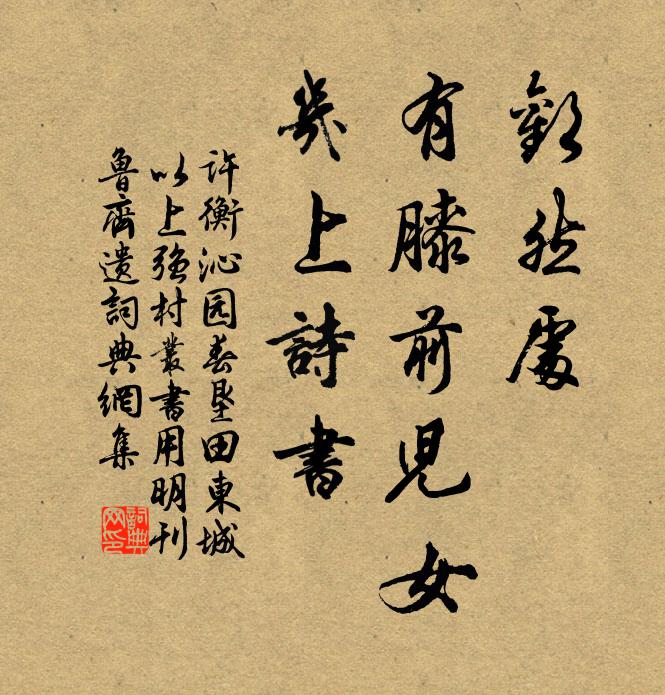 歡然處
有膝前兒女
幾上詩書
許衡沁园春垦田東城
以上强村叢書用明刊
魯齋遗詞典網集
詞典
网印